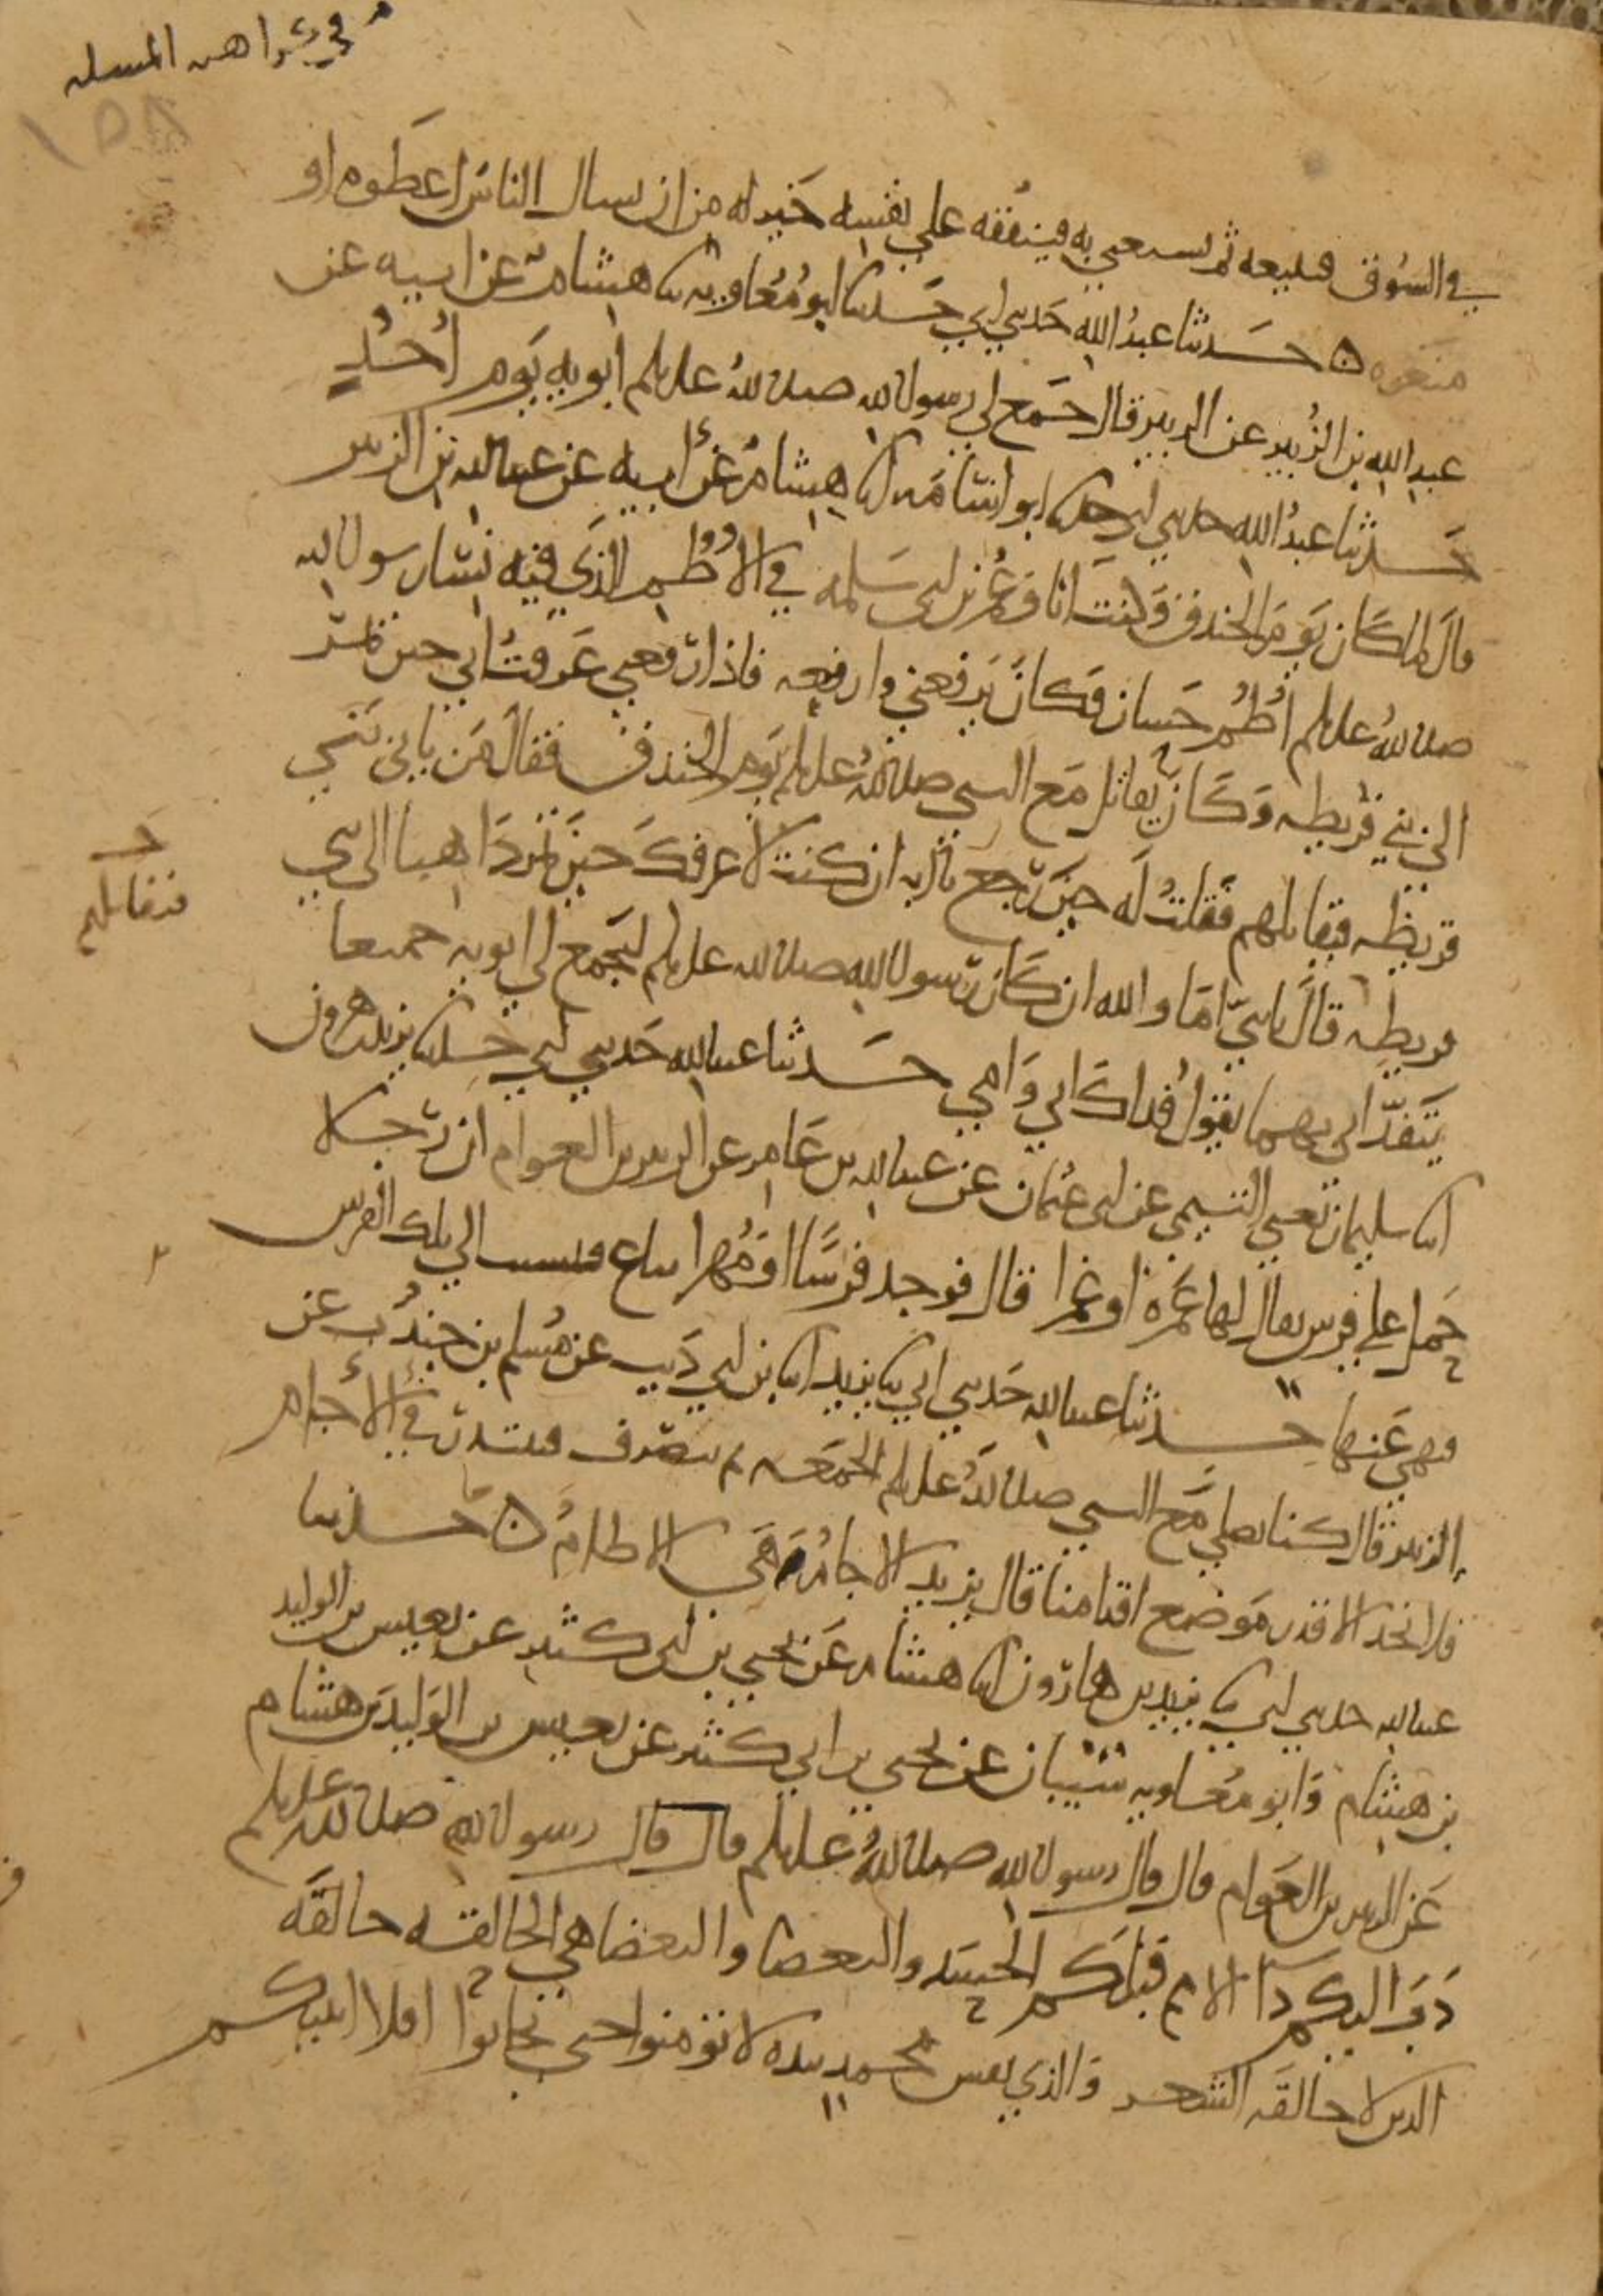 في كراهه المسله
١٥٨
في السوق فيبيعه ثم يستغني به فينفقه على نفسه خير له من ان يسال الناس اعطوه او
منعوه ه حدثنا عبد الله حدثني ابي حدثنا ابو معاويه ثنا هشام عن ابيه عن
عبد الله بن الزبير عن الزبير قال جمع لي رسول الله صلى الله عليه وسلم ابويه يوم احد
حدثنا عبد الله حدثني ابي حدثنا ابو اسامه انا هشام عن ابيه عن عبد الله بن الزبير
قال لما كان يوم الخندق وكنت انا وعمر بن ابي سلمه في الاطم الذي فيه نسا رسول الله
صلى الله عليه وسلم اطم حسان وكان يرفعني وارفعه فاذا رفعني عرفت ابي حين يمر
الى بني قريظه وكان يقاتل مع النبي صلى الله عليه وسلم يوم الخندق فقال من ياتي بني
قريظه فيقاتلهم فقلت له حين رجع يا ابه ان كنت لاعرفك حين تمر ذاهبا الى بني
قريظه قال يا بني اما والله ان كان رسول الله صلى الله عليه وسلم ليجمع لي ابويه جميعا
يتفداني بهما يقول فداك ابي وامي حدثنا عبد الله حدثني ابي حدثنا يزيد بن هرون
انا سليمان يعني التيمي عن ابي عثمان عن عبد الله بن عامر عن الزبير بن العوام ان رجلا
حمل على فرس يقال لها غمره او غمرا قال فوجد فرسا او مهرا يباع فنسبت الى تلك الفرس
فنهي عنها حدثنا عبد الله حدثني ابي ثنا يزيد انا بن ابي ذيب عن مسلم بن جندب عن
الزبير قال كنا نصلي مع النبي صلى الله عليه وسلم الجمعه ثم ننصرف فنبتدر في الاجام
فلا نجد الا قدر موضع اقدامنا قال يزيد الاجام هي الاطام ه حدثنا
عبد الله حدثني ابي ثنا يزيد بن هارون انا هشام عن يحيى بن ابي كثير عن يعيش بن الوليد
بن هشام وابو معاويه شيبان عن يحيى بن ابي كثير عن يعيش بن الوليد بن هشام
عن الزبير بن العوام قال قال رسول الله صلى الله عليه وسلم قال قال رسول الله صلى الله عليه وسلم
دب اليكم دا الامم قبلكم الحسد والبغضا والبغضا هي الحالقه حالقه
الدين لا حالقه الشعر والذي نفس محمد بيده لا تؤمنوا حتى تحابوا افلا انبئكم
فيقاتلهم